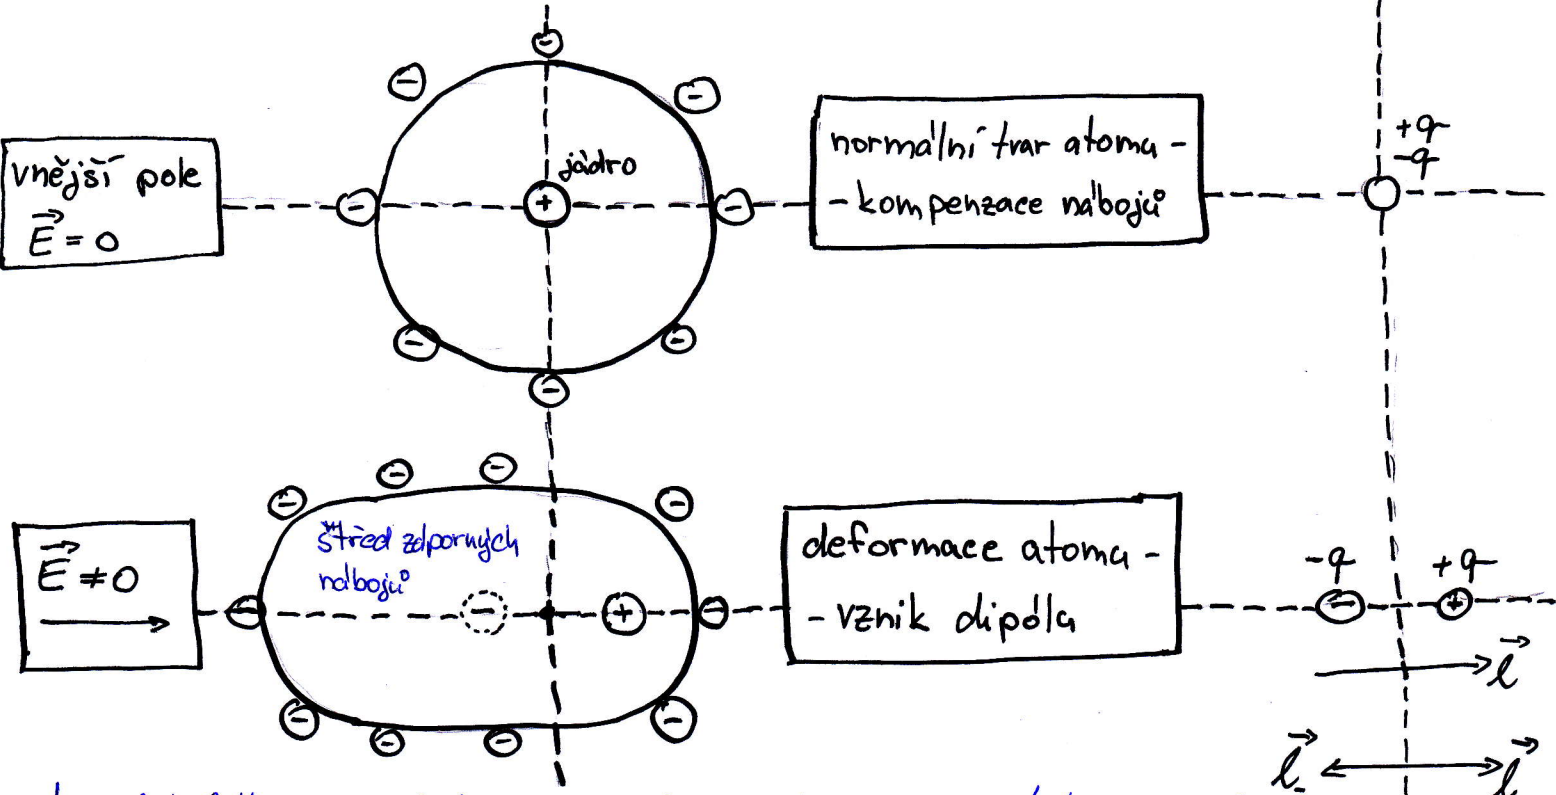 vnější pole
E⃗ = 0
jádro
normální tvar atomu -
- kompenzace nábojů
+q
-q
E⃗ ≠ 0
střed záporných
nábojů
deformace atomu -
- vznik dipólu
-q +q
l⃗
l⃗₋ l⃗